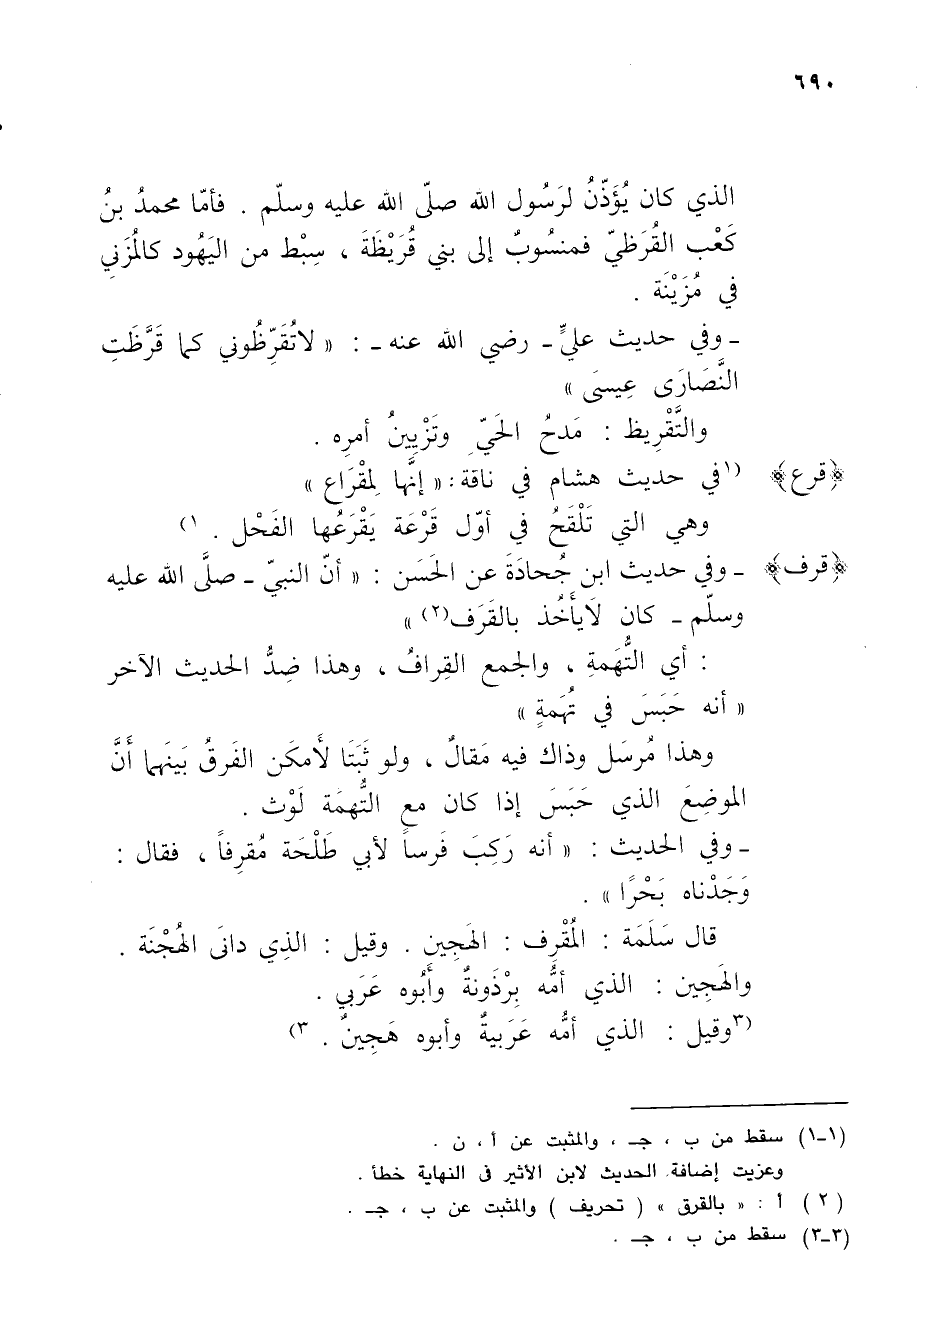 ٦٩٠
الذي كان يُؤَذّنُ لرَسُول الله صلّى الله عليه وسلّم . فأمّا محمدُ بنُ
كَعْب القُرَظيّ فمنسُوبٌ إلى بني قُرَيْظَةَ ، سِبْط من اليَهُود كالمُزَني
في مُزَيْنَة .
ـ وفي حديث عليٍّ ـ رضي الله عنه ـ : « لاتُقَرِّظُوني كما قَرَّظَتِ
النَّصَارَى عِيسَى »
والتَّقْرِيظ : مَدحُ الحَيّ وتَزْيِينُ أمرِه .
﴿قرع﴾ (١في حديث هشام في ناقة : « إنَّها لَمِقْرَاع »
وهي التي تَلْقَحُ في أوّل قَرْعَة يَقْرَعُها الفَحْل . ١)
﴿قرف﴾ ـ وفي حديث ابن جُحادَةَ عن الحَسَن : « أنّ النبيّ ـ صلَّى الله عليه
وسلّم ـ كان لَايأخُذ بالقَرَف(٢) »
: أي التُّهَمةِ ، والجمع القِرافُ ، وهذا ضِدُّ الحديث الآخر
« أنه حَبَسَ في تُهَمةٍ »
وهذا مُرسَل وذاك فيه مَقالٌ ، ولو ثَبَتَا لَأمكَن الفَرقُ بَينَهما أَنَّ
الموضِعَ الذي حَبَسَ إذا كان مع التُّهمَة لَوْث .
ـ وفي الحديث : « أنه رَكِبَ فَرساً لأبي طَلْحَة مُقرِفاً ، فقال :
وَجَدْناه بَحْرًا » .
قال سَلَمَة : المُقْرِف : الهَجِين . وقيل : الذِي دانَى الهُجْنَة .
والهَجِين : الذي أمُّه بِرْذَونةٌ وأَبُوه عَرَبي .
(٣وقيل : الذي أمُّه عَرَبيةٌ وأبوه هَجِينٌ . ٣)
(١ـ١) سقط من ب ، جـ ، والمثبت عن أ ، ن .
وعزيت إضافة الحديث لابن الأثير فى النهاية خطأ .
( ٢ ) أ : « بالقرق » ( تحريف ) والمثبت عن ب ، جـ .
(٣ـ٣) سقط من ب ، جـ .